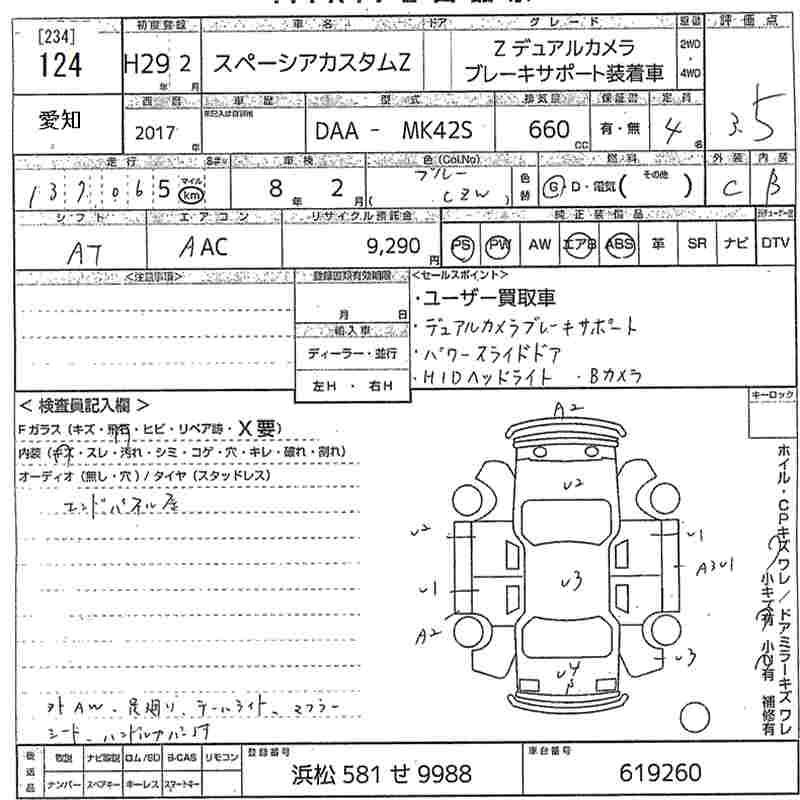 [234]
124
初度登録
車名
ドア
グレード
駆動
評価点
H29 2
年 月
スペーシアカスタムZ
Z デュアルカメラ
ブレーキサポート装着車
2WD
・
4WD
3.5
愛知
西暦
車歴
型式
排気量
保証書
定員
2017 年
DAA - MK42S
660 cc
有・無
4 名
走行
車検
色(Col.No)
燃料
外装
内装
137,065
マイル
km
8 年 2 月
ブルー
( CZW )
色替
G・D・電気( その他 )
C
B
シフト
エアコン
リサイクル預託金
純正装備品
AT
AAC
9,290 円
PS
PW
AW
エアB
ABS
革
SR
ナビ
DTV
<注意事項>
登録書類有効期限
<セールスポイント>
月 日
・ユーザー買取車
輸入車
・デュアルカメラブレーキサポート
ディーラー・並行
・パワースライドドア
左H ・ 右H
・HIDヘッドライト ・Bカメラ
キーロック
< 検査員記入欄 >
Fガラス (キズ・飛石・ヒビ・リペア跡・X要)
内装 (キズ・スレ・汚れ・シミ・コゲ・穴・キレ・破れ・割れ)
オーディオ (無し・穴) / タイヤ (スタッドレス)
エンドパネル歪
A2
U2
U2
U1
A3U1
U3
U1
A2
U3
U4
B
ホイル・CPキズワレ/ドアミラーキズワレ
小キズ有 小U有 補修有
外AW、足廻り、テールライト、マフラー
シート、ハンドルカバー付
後送品
取説
ナビ取説
ロム/SD
B-CAS
リモコン
登録番号
車台番号
ナンバー
スペアキー
キーレス
スマートキー
浜松 581 せ 9988
619260